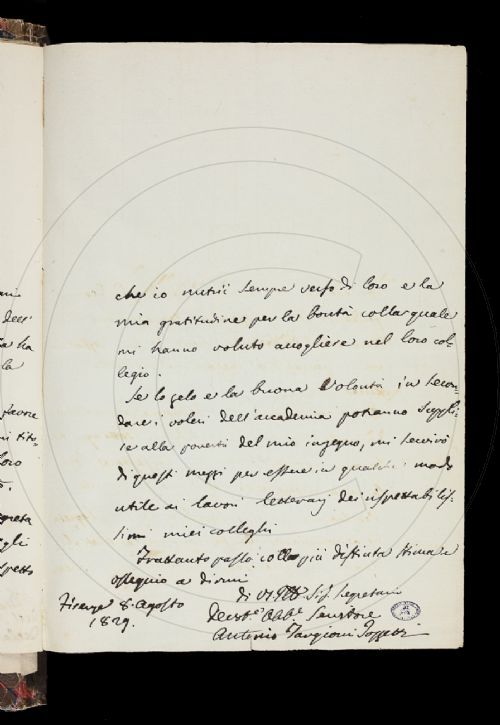 che io nutrii sempre verso di loro e la
mia gratitudine per la bontà colla quale
mi hanno voluto accogliere nel loro col-
legio.
Se lo zelo e la buona volontà in secon-
dare i voleri dell'accademia potranno suppli-
re alla povertà del mio ingegno, mi servirò
di questi mezzi per essere in qualche modo
utile ai lavori letterarj dei rispettabilis-
simi miei colleghi
Frattanto passo colla più distinta stima e
ossequio a dirmi
di Sig. Segretario
Firenze 8 Agosto
1829.
Devot.º Obb.º Servitore
Antonio Targioni Tozzetti